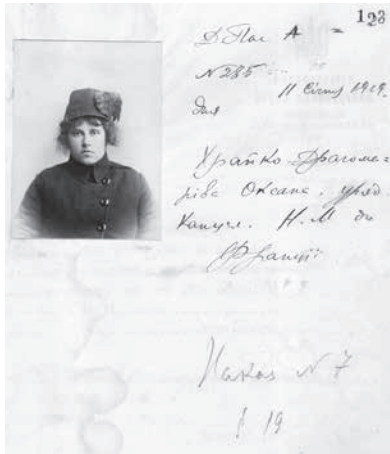 123
Д. Пас А =
№ 285
дня 11 Січня 1919.
Храпко-Драгома=
рівa Оксана. уряд.
Канцел. Н. М. до
Франції.
Наказ № 7
§ 19